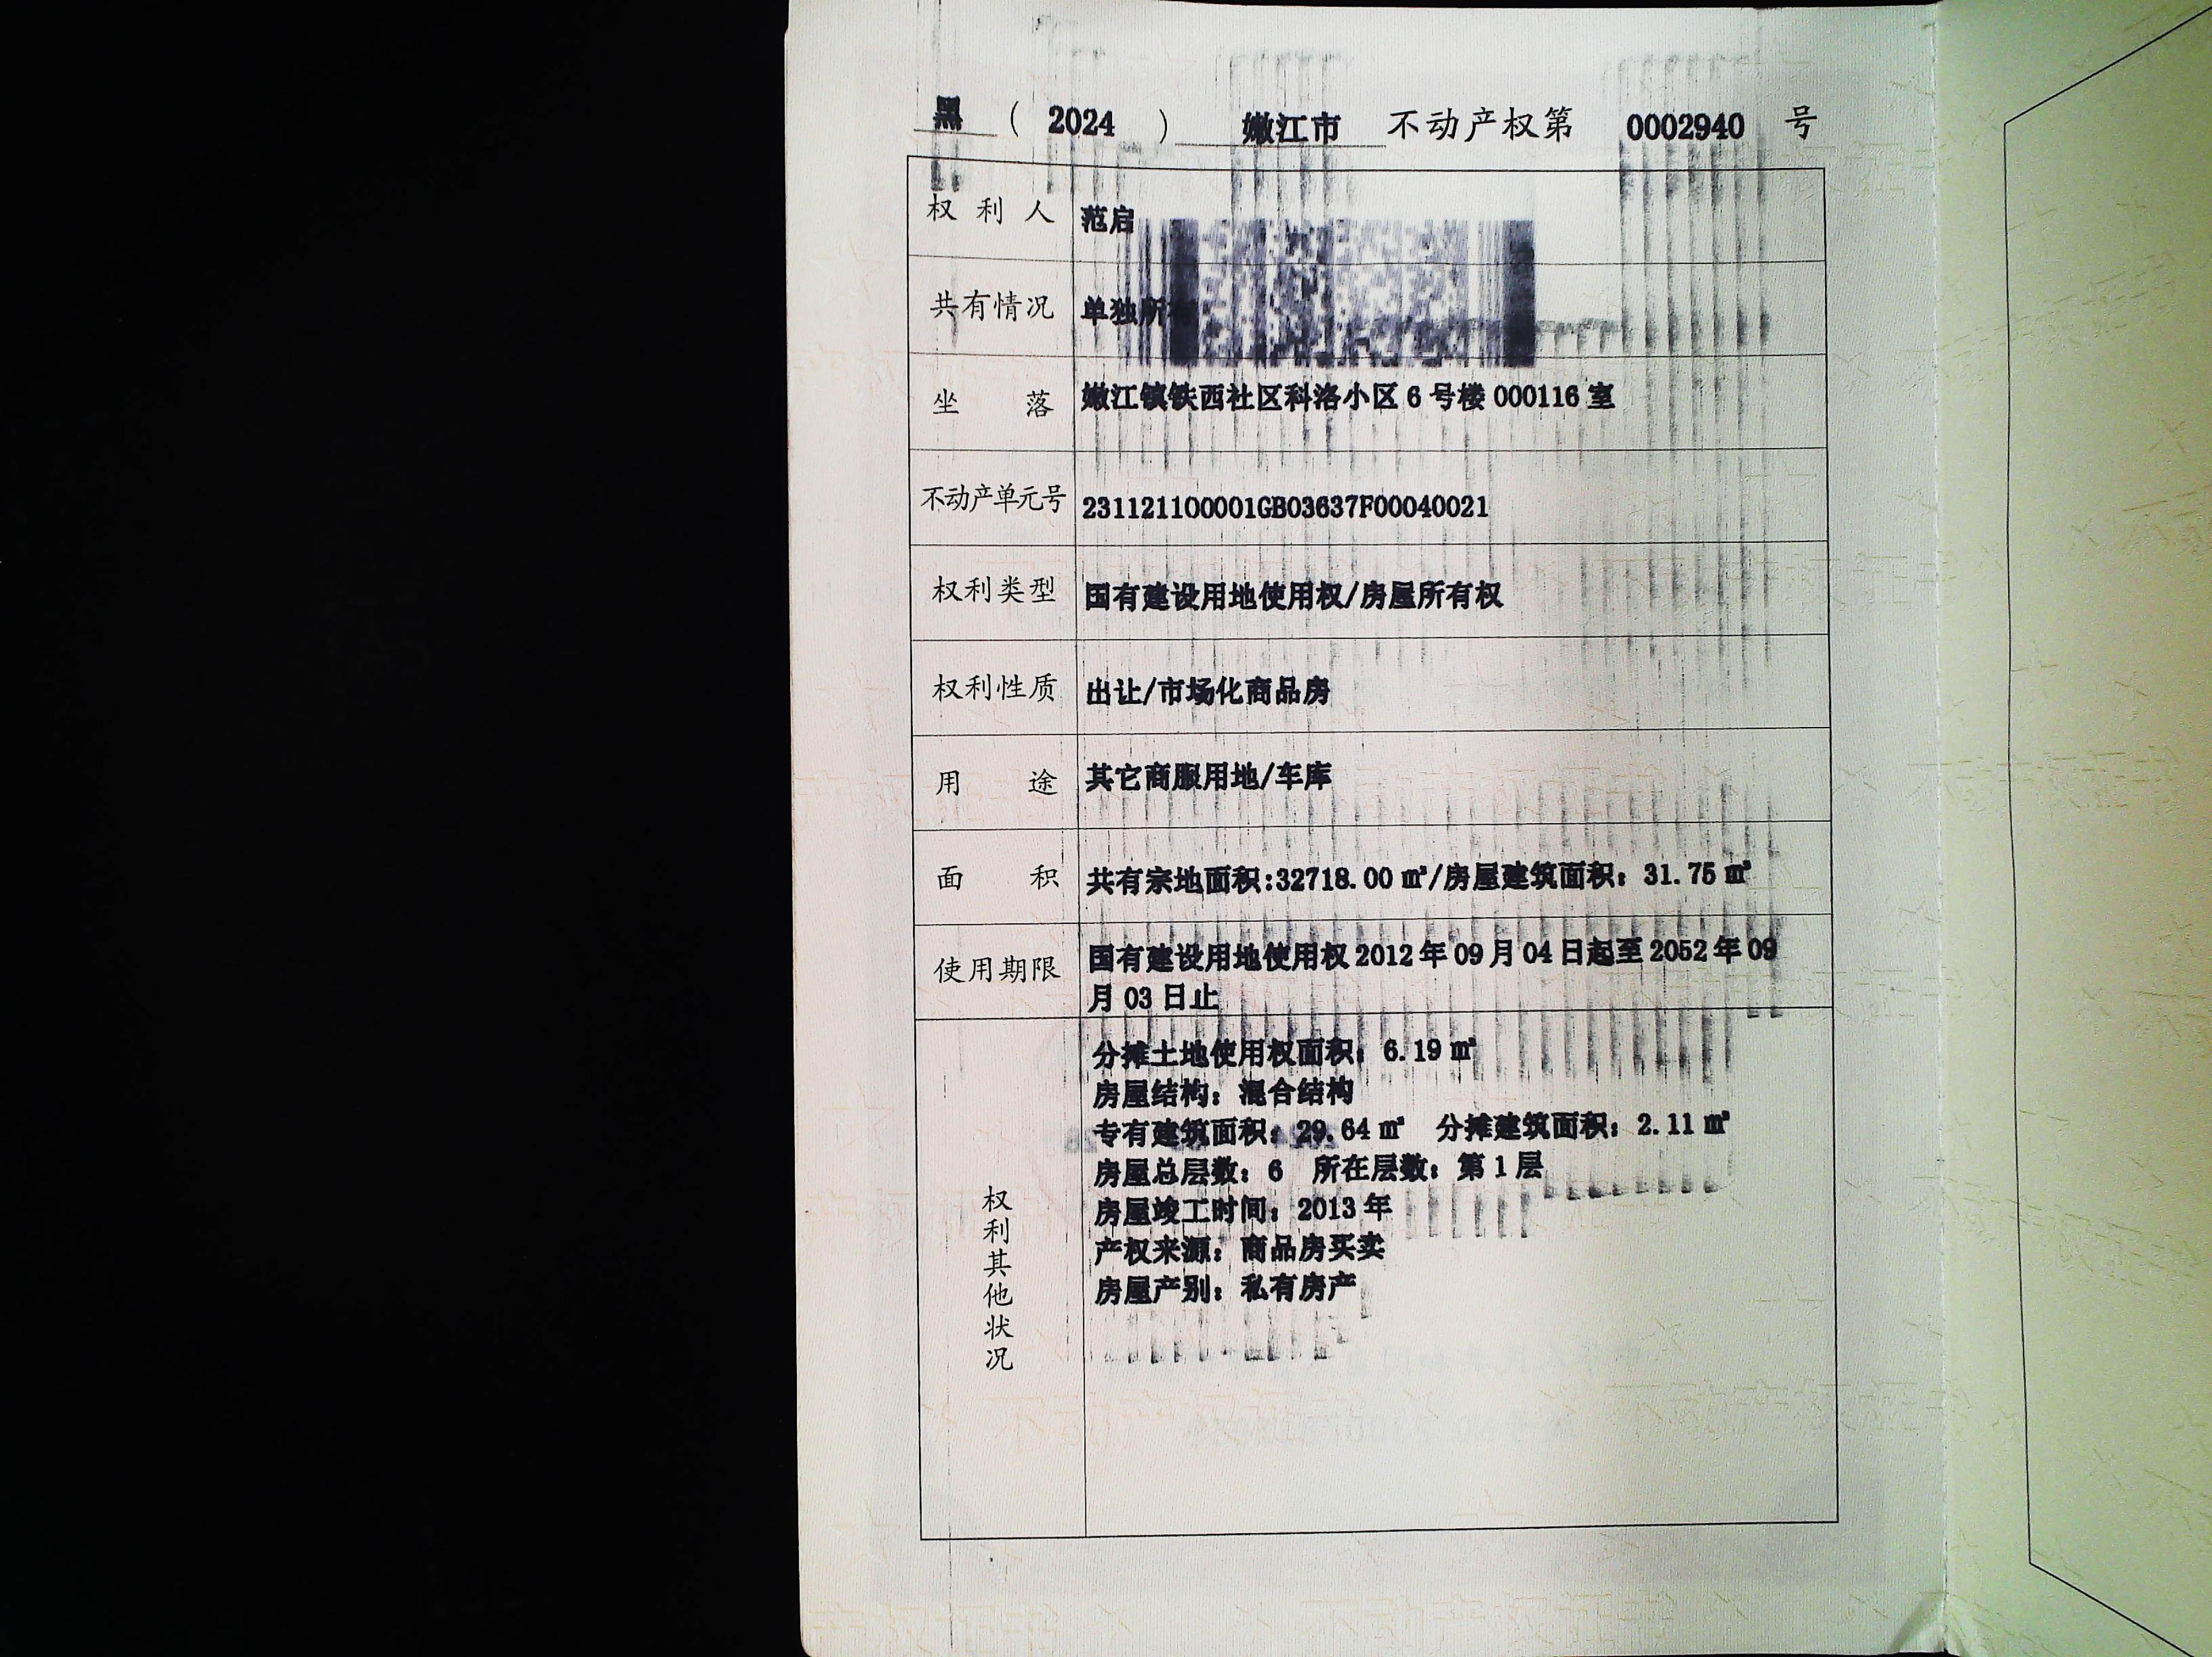 黑 ( 2024 ) 嫩江市 不动产权第 0002940 号
权利人 范启
共有情况 单独所
坐落 嫩江镇铁西社区科洛小区 6 号楼 000116 室
不动产单元号 231121100001GB03637F00040021
权利类型 国有建设用地使用权/房屋所有权
权利性质 出让/市场化商品房
用途 其它商服用地/车库
面积 共有宗地面积:32718.00 ㎡/房屋建筑面积：31.75 ㎡
使用期限 国有建设用地使用权 2012 年 09 月 04 日起至 2052 年 09
月 03 日止
权利其他状况
分摊土地使用权面积：6.19 ㎡
房屋结构：混合结构
专有建筑面积：29.64 ㎡ 分摊建筑面积：2.11 ㎡
房屋总层数：6 所在层数：第 1 层
房屋竣工时间：2013 年
产权来源：商品房买卖
房屋产别：私有房产